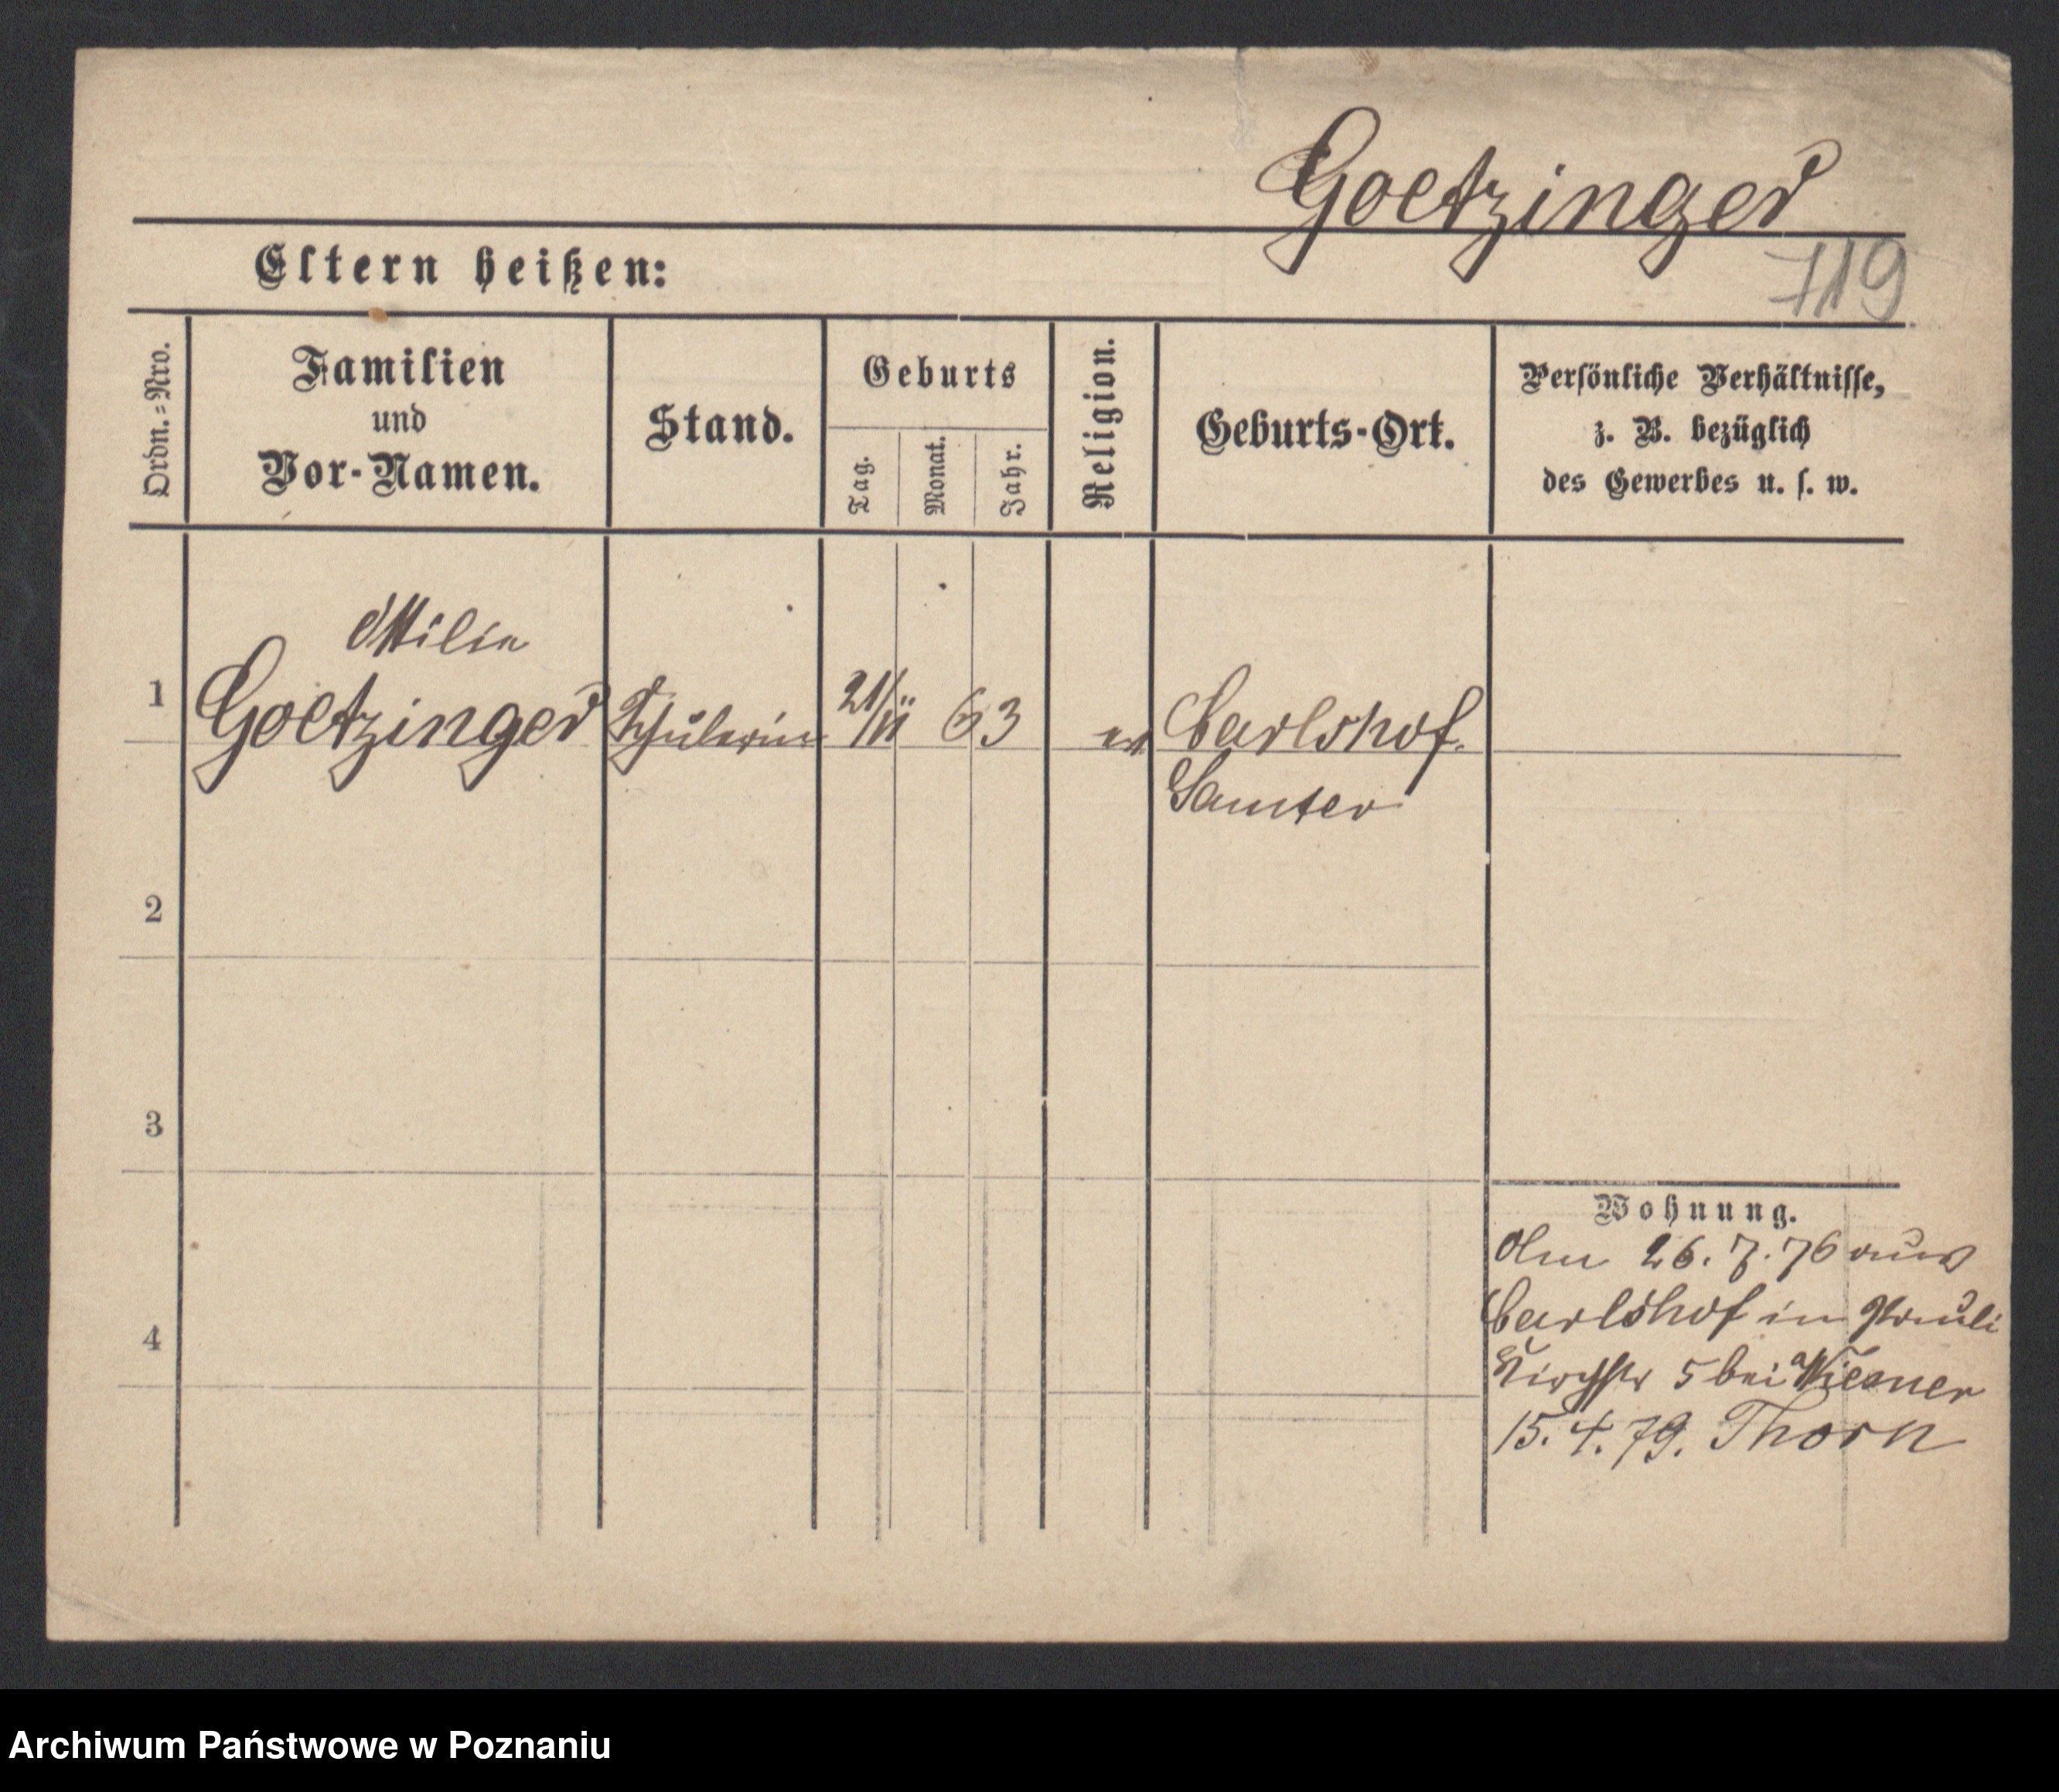 Goetzinger
719
Eltern heißen:
Ordn.=Nro.
Familien
und
Vor-Namen.
Stand.
Geburts
Tag.
Monat.
Jahr.
Religion.
Geburts-Ort.
Persönliche Verhältnisse,
z. B. bezüglich
des Gewerbes u. s. w.
Ottilie
1 Goetzinger Schülerin 21/ii 63 ev Carlshof.
Samter
2
3
4
Wohnung.
Am 26. 7. 76 aus
Carlshof in Pauli
Kirchstr 5 bei Wiesner
15. 4. 79. Thorn
Archiwum Państwowe w Poznaniu